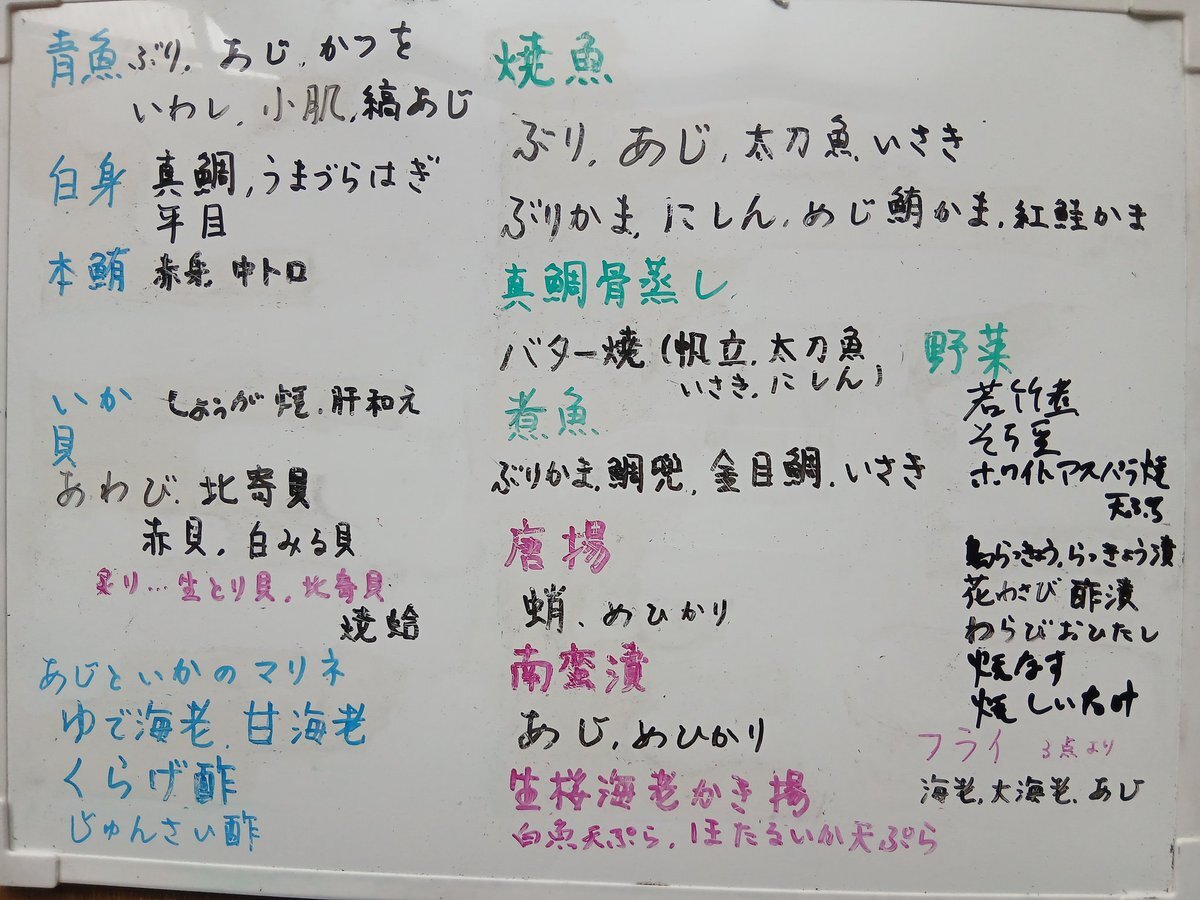 青魚 ぶり、あじ、かつを
いわし、小肌、縞あじ
白身 真鯛、うまづらはぎ
平目
本鮪 赤身 中トロ
いか しょうが焼、肝和え
貝
あわび、北寄貝
赤貝、白みる貝
炙り…生とり貝、北寄貝
焼蛤
あじといかのマリネ
ゆで海老、甘海老
くらげ酢
じゅんさい酢
焼魚
ぶり、あじ、太刀魚 いさき
ぶりかま、にしん、めじ鮪かま、紅鮭かま
真鯛骨蒸し
バター焼(帆立、太刀魚
いさき、にしん)
煮魚
ぶりかま、鯛兜、金目鯛、いさき
唐揚
蛸、めひかり
南蛮漬
あじ、めひかり
生桜海老かき揚
白魚天ぷら、ほたるいか天ぷら
野菜
若竹煮
そら豆
ホワイトアスパラ焼
天ぷら
島らっきょう、らっきょう漬
花わさび 酢漬
わらびおひたし
焼なす
焼しいたけ
フライ 3点より
海老、大海老、あじ